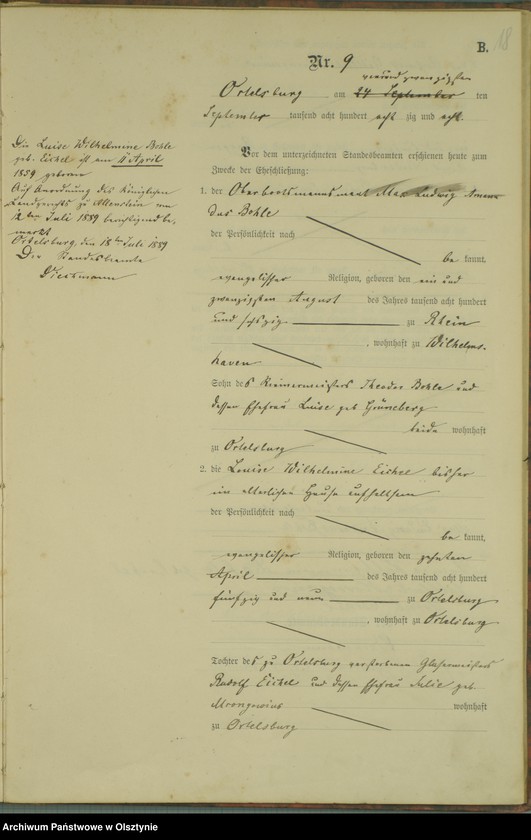 B.
18
Nr. 9
vierundzwanzigsten
Ortelsburg am 24 September ten
September tausend acht hundert acht zig und acht.
Vor dem unterzeichneten Standesbeamten erschienen heute zum
Zwecke der Eheschließung:
1. der Oberbootsmannsmaat Max Ludwig
Bohle
der Persönlichkeit nach
be kannt,
evangelischer Religion, geboren den ein und
zwanzigsten August des Jahres tausend acht hundert
und sechszig zu Rhein
, wohnhaft zu Wilhelms-
haven
Sohn des Theodor Bohle und
dessen Ehefrau Luise geb Grüneberg
beide wohnhaft
zu Ortelsburg
2. die Louise Wilhelmine Eichel bisher
im elterlichen Hause aufhaltsam
der Persönlichkeit nach
be kannt,
evangelischer Religion, geboren den zehnten
April des Jahres tausend acht hundert
fünfzig und neun zu Ortelsburg
, wohnhaft zu Ortelsburg
Tochter des zu Ortelsburg verstorbenen Glasermeisters
Rudolf Eichel und dessen Ehefrau Julie geb.
wohnhaft
zu Ortelsburg
Die Luise Wilhelmine Bohle
geb. Eichel ist am 11 April
1859 geboren
Auf Anordnung des Königlichen
Landgerichts zu Allenstein vom
12ten Juli 1889 berichtigend be-
merkt
Ortelsburg, den 18ten Juli 1889
Der Standesbeamte
Archiwum Państwowe w Olsztynie